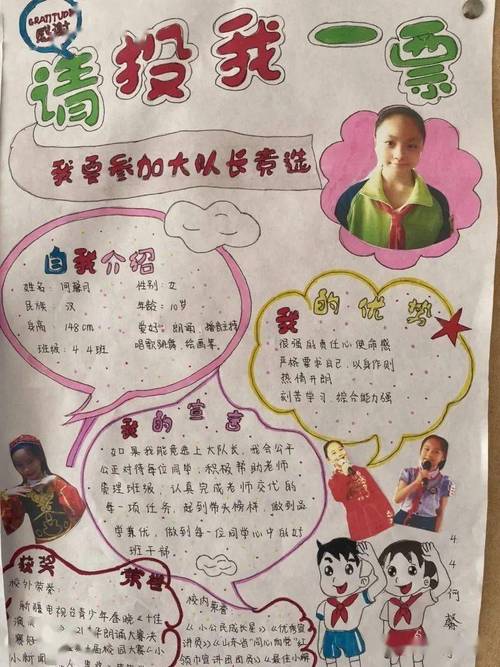 GRATITUDE
感谢
请投我一票
我要参加大队长竞选
自我介绍
姓名: 何馨月 性别: 女
民族: 汉 年龄: 10岁
身高 148cm 爱好: 朗诵、播音主持
班级: 4.4班 唱歌跳舞、绘画等.
我的优势
很强的责任心使命感
严格要求自己,以身作则
热情开朗
刻苦学习,综合能力强
我的宣言
如果我能竞选上大队长,我会公平
公正对待每位同学,积极帮助老师
管理班级,认真完成老师交代的
每一项任务,起到带头榜样,做到品
学兼优,做到每一位同学心中的好
班干部
4.4何馨
获奖 荣誉
校外荣誉:
新疆电视台青少年春晚<十佳
朗诵大赛决
校园大赛<小
校内荣誉
<小公民成长星><优秀宣
讲员><山东省"同心向党"红
领巾宣讲团团员><最佳小解